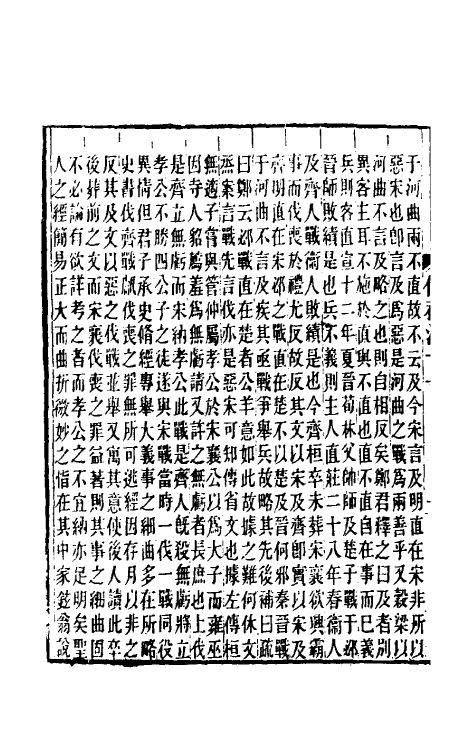 于河曲兩不直故不云及今宋言及明直在宋非所以
惡宋也卽言及爲惡是河曲之戰爲兩善乎又穀梁以
河曲不言及略之也則自相反矣鄭君釋之曰及者別
異客主耳不施於直與不直也直不直自在事而已義
兵則客直宣十二年夏晉荀林父帥師及楚子戰于邲
晉師敗績是也兵不義則主人直莊二十八年春衞人
及齊人戰衞人敗績是也今齊桓卒未葬宋襄欲興霸
事而伐喪於禮尤反故反其文以宋及齊卽實以宋及
齊明直在宋邲之戰直在楚不以楚及晉何邪秦晉戰
于河曲不言及疾其亟戰爭舉兵故略其先後補曰疏
曰鄭云邲戰直在楚者公羊意如此故據之難何休文
烝案言戰先言伐亦是惡宋可知傳省文也據左傳桓
無適子嘗與管仲屬孝公於宋襄公以爲大子而雍巫
因寺人貂薦羞爲無虧請又許之無虧者長庶也上伐
是齊立無虧而宋納孝公此戰是齊人旣殺無虧將立
孝公不勝四公子之徒遂與宋戰宋當時一伐一戰同役
異情但君子承史脩經專舉大義事之細曲多在所略
史書伐齊戰甗伐喪之罪無所可逃經因存月以非之
反其及文以惡之伐戰並舉又寓其意使後人讀此卒
後葬前之文而宋襄伐喪之罪益著則其事之細曲固
不必論有欲詳考之者而孝公之不宜納亦足明矣聖
人之經簡易正大而曲折微妙之指在其中家鉉翁說